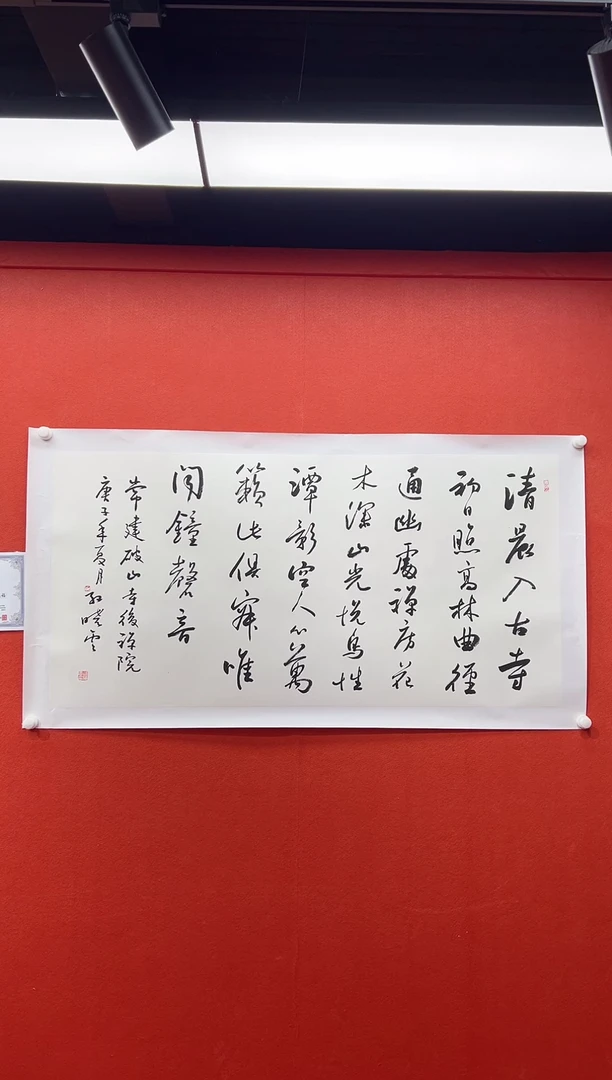 清晨入古寺
初日照高林曲径
通幽處禅房花
木深山光悦鸟性
潭影空人心萬
籁此俱寂唯
闻鐘磬音
常建破山寺後禅院
庚子年夏月孙晓云